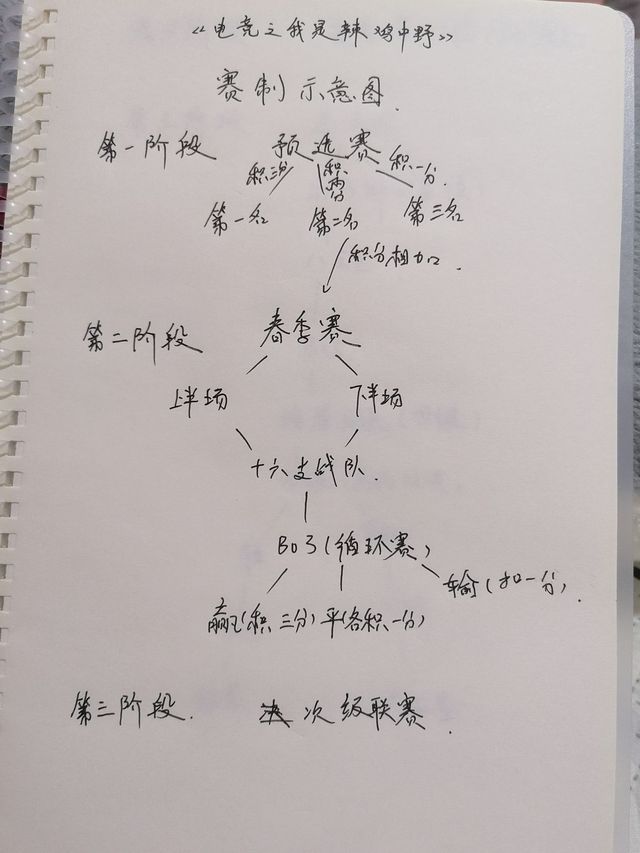 《电竞之我是辣鸡中野》
赛制示意图.
第一阶段 预选赛
积三分 积零分 积一分.
第一名 第二名 第三名
积分相加.
第二阶段 春季赛
上半场 下半场
十六支战队.
BO3(循环赛)
输(扣一分).
赢(积三分) 平(各积一分)
第三阶段. 次级联赛.